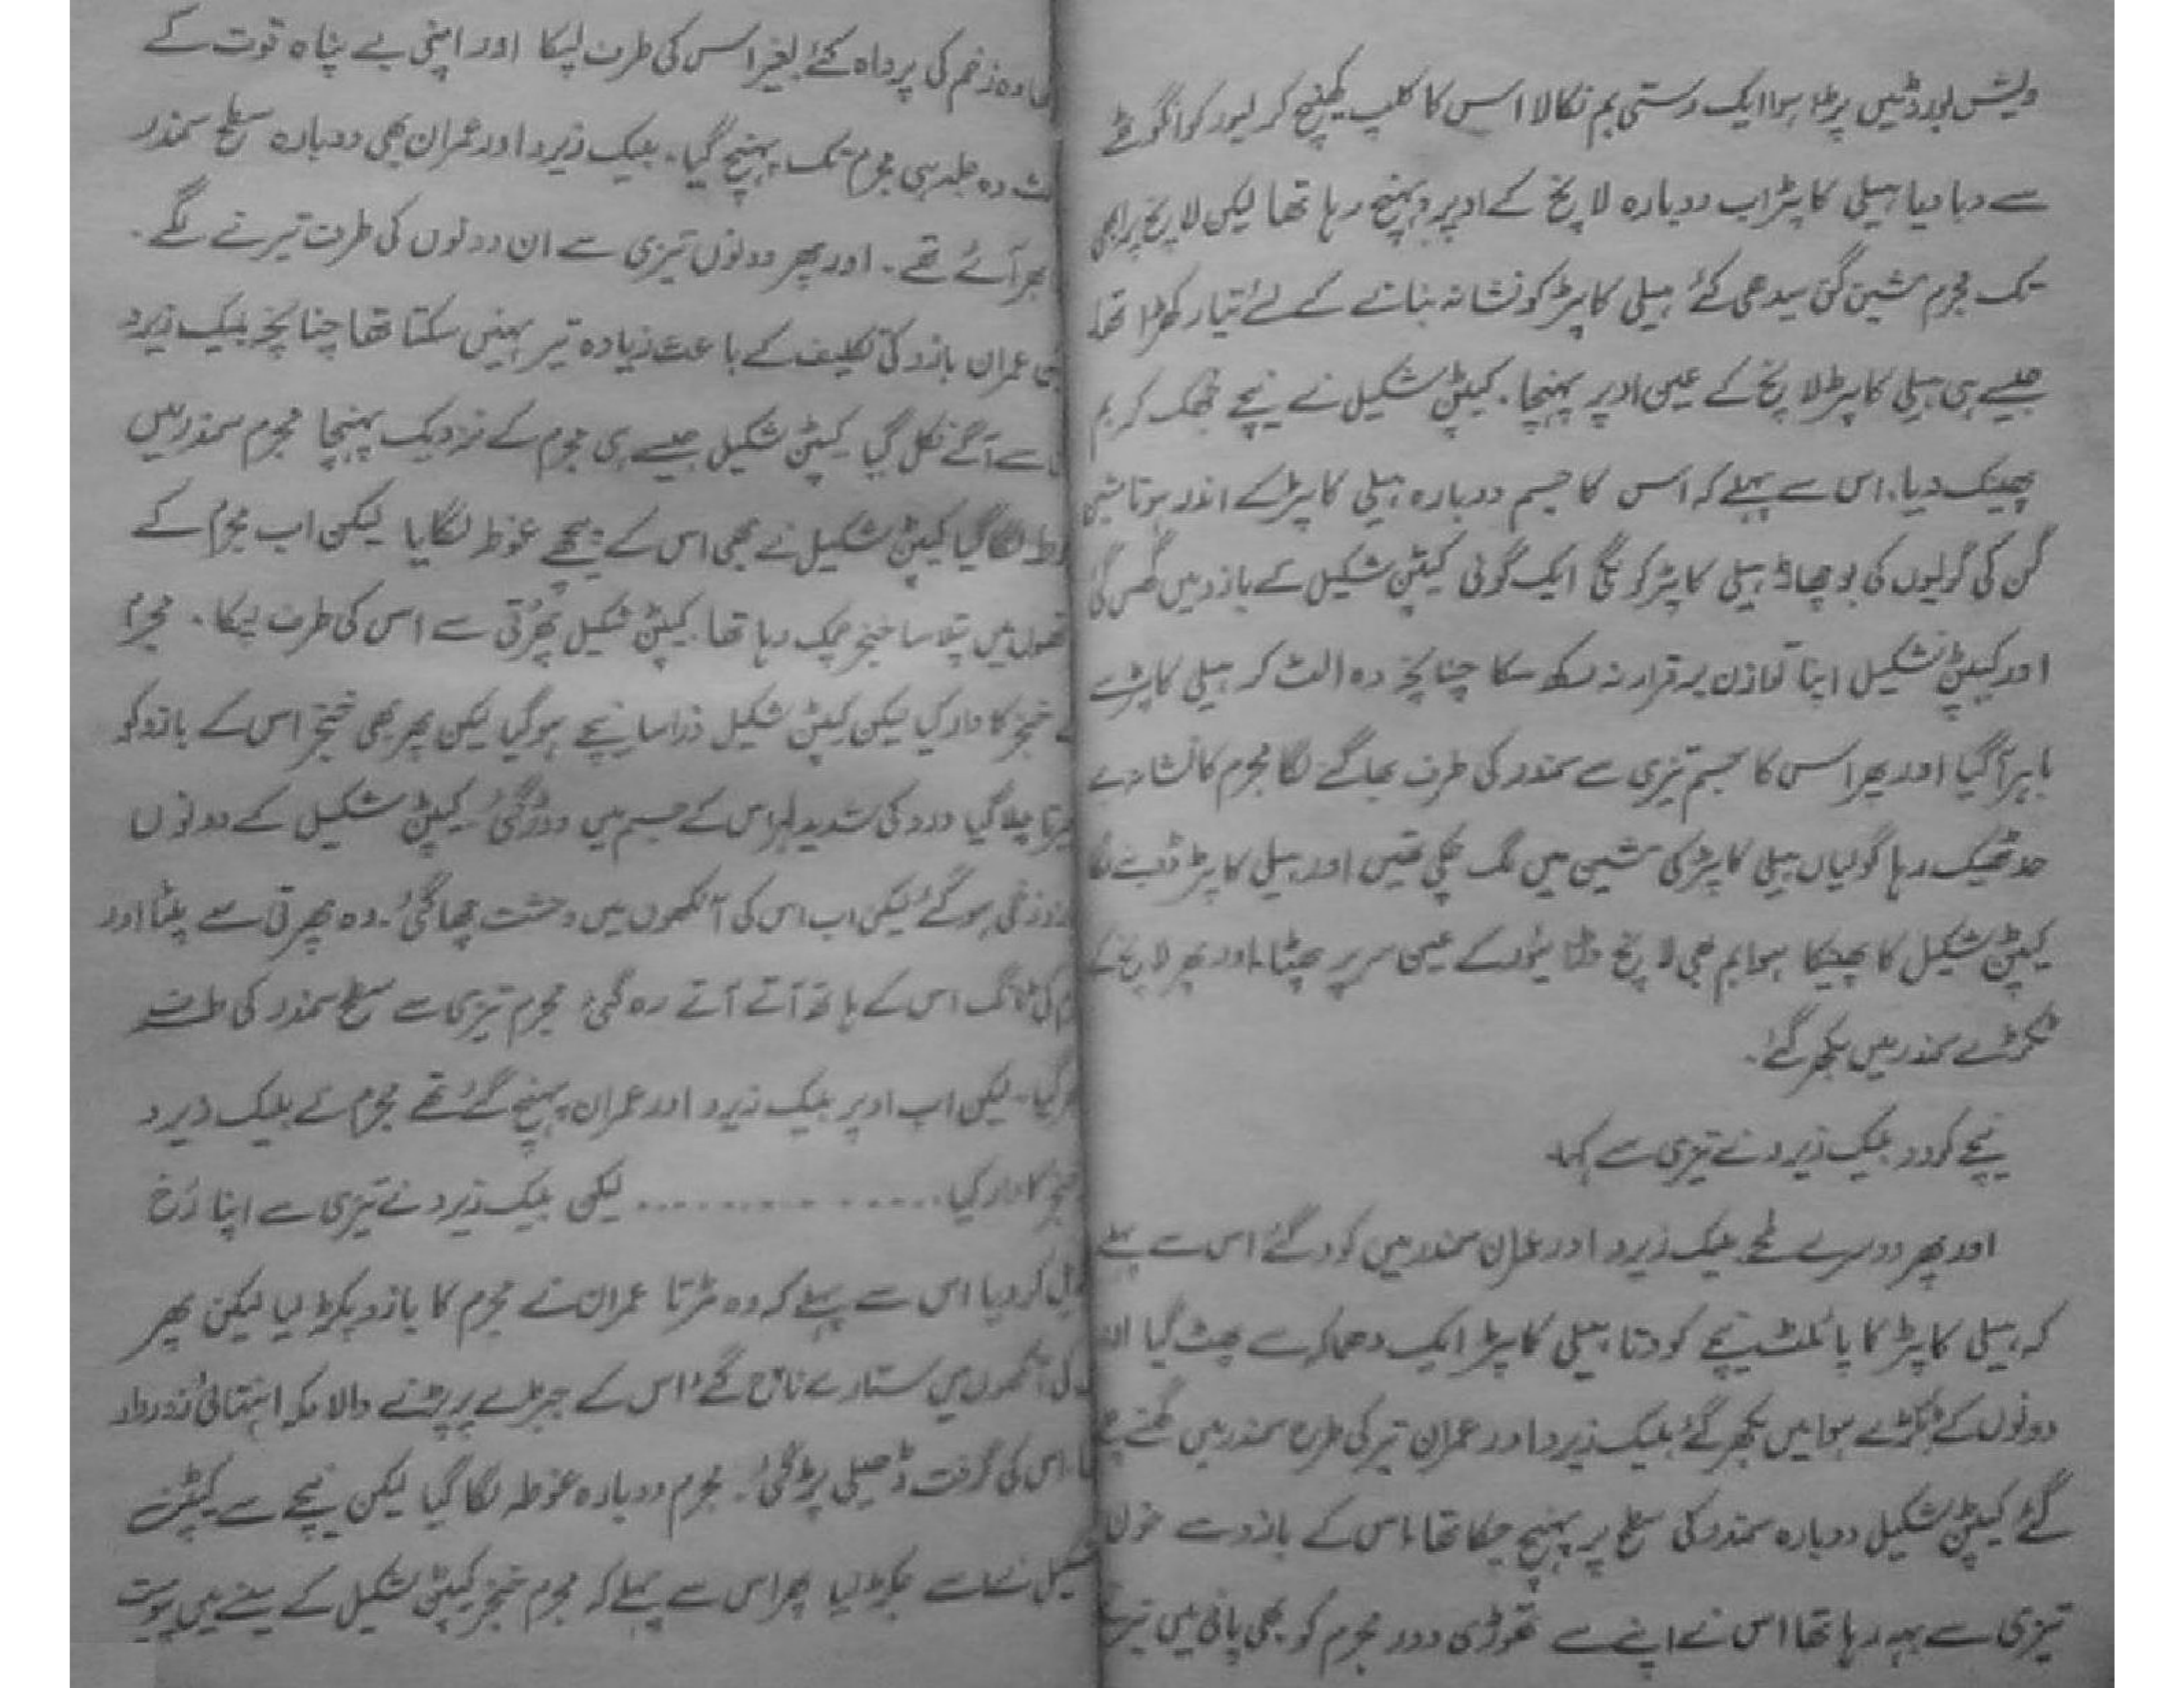 ڈیش بورڈ میں پڑا ہوا ایک دستی بم نکالا اس کا کلپ کھینچ کر لیور کو انگوٹھے
سے دبا دیا ہیلی کاپٹر اب دوبارہ لانچ کے اوپر پہنچ رہا تھا لیکن لانچ پر ابھی
تک مجرم مشین گن سیدھی کئے ہیلی کاپٹر کو نشانہ بنانے کے لئے تیار کھڑا تھا
جیسے ہی ہیلی کاپٹر لانچ کے عین اوپر پہنچا۔ کیپٹن شکیل نے نیچے جھک کر بم
پھینک دیا۔ اس سے پہلے کہ اس کا جسم دوبارہ ہیلی کاپٹر کے اندر ہوتا مشین
گن کی گولیوں کی بوچھاڑ ہیلی کاپٹر کو لگی ایک گولی کیپٹن شکیل کے بازو میں گھس گئی
اور کیپٹن شکیل اپنا توازن برقرار نہ رکھ سکا چنانچہ وہ الٹ کر ہیلی کاپٹر سے
باہر آ گیا اور پھر اس کا جسم تیزی سے سمندر کی طرف بھاگنے لگا مجرم کا نشانہ بے
حد ٹھیک رہا گولیاں ہیلی کاپٹر کی مشین میں لگ چکی تھیں اور ہیلی کاپٹر ڈوبنے لگا
کیپٹن شکیل کا پھینکا ہوا بم بھی لانچ ڈرائیور کے عین سر پر پھٹا۔ اور پھر لانچ کے
ٹکڑے سمندر میں بکھر گئے۔
نیچے کودو۔ بلیک زیرو نے تیزی سے کہا۔
اور پھر دوسرے لمحے بلیک زیرو اور عمران سمندر میں کود گئے اس سے پہلے
کہ ہیلی کاپٹر کا پائلٹ نیچے کودتا ہیلی کاپٹر ایک دھماکہ سے پھٹ گیا اور
دونوں کے ٹکڑے ہوا میں بکھر گئے بلیک زیرو اور عمران تیر کی طرح سمندر میں گھستے چلے
گئے کیپٹن شکیل دوبارہ سمندر کی سطح پر پہنچ چکا تھا۔ اس کے بازو سے خون
تیزی سے بہہ رہا تھا اس نے اپنے سے تھوڑی دور مجرم کو بھی پانی میں تیرتے
وہ زخم کی پرواہ کئے بغیر اس کی طرف لپکا اور اپنی بے پناہ قوت کے
وہ جلد ہی مجرم تک پہنچ گیا۔ بلیک زیرو اور عمران بھی دوبارہ سطح سمندر
ابھر آئے تھے۔ اور پھر دونوں تیزی سے ان دونوں کی طرف تیرنے لگے۔
عمران بازو کی تکلیف کے باعث زیادہ تیر نہیں سکتا تھا چنانچہ بلیک زیرو
سے آگے نکل گیا کیپٹن شکیل جیسے ہی مجرم کے نزدیک پہنچا مجرم سمندر میں
لگا گیا کیپٹن شکیل نے بھی اس کے پیچھے غوطہ لگایا لیکن اب مجرم کے
میں پتلا سا خنجر چمک رہا تھا۔ کیپٹن شکیل پھرتی سے اس کی طرف لپکا۔ مجرم
خنجر کا وار کیا لیکن کیپٹن شکیل ذرا سا نیچے ہو گیا لیکن پھر بھی خنجر اس کے بازو کو
چلا گیا درد کی شدید لہر اس کے جسم میں دوڑ گئی۔ کیپٹن شکیل کے دونوں
زخمی ہو گئے لیکن اب اس کی آنکھوں میں وحشت چھا گئی۔ وہ پھرتی سے پلٹا اور
کی ٹانگ اس کے ہاتھ آتے آتے رہ گئی۔ مجرم تیزی سے سطح سمندر کی طرف
گیا۔ لیکن اب اوپر بلیک زیرو اور عمران پہنچ گئے تھے مجرم نے بلیک زیرو
خنجر کا وار کیا............... لیکن بلیک زیرو نے تیزی سے اپنا رخ
کر دیا اس سے پہلے کہ وہ مڑتا عمران نے مجرم کا بازو پکڑ لیا لیکن پھر
کی آنکھوں میں ستارے ناچ گئے۔ اس کے جبڑے پر پڑنے والا مکہ انتہائی زوردار
اس کی گرفت ڈھیلی پڑ گئی۔ مجرم دوبارہ غوطہ لگا گیا لیکن نیچے سے کیپٹن
شکیل نے اسے جکڑ لیا پھر اس سے پہلے کہ مجرم خنجر کیپٹن شکیل کے سینے میں پیوست